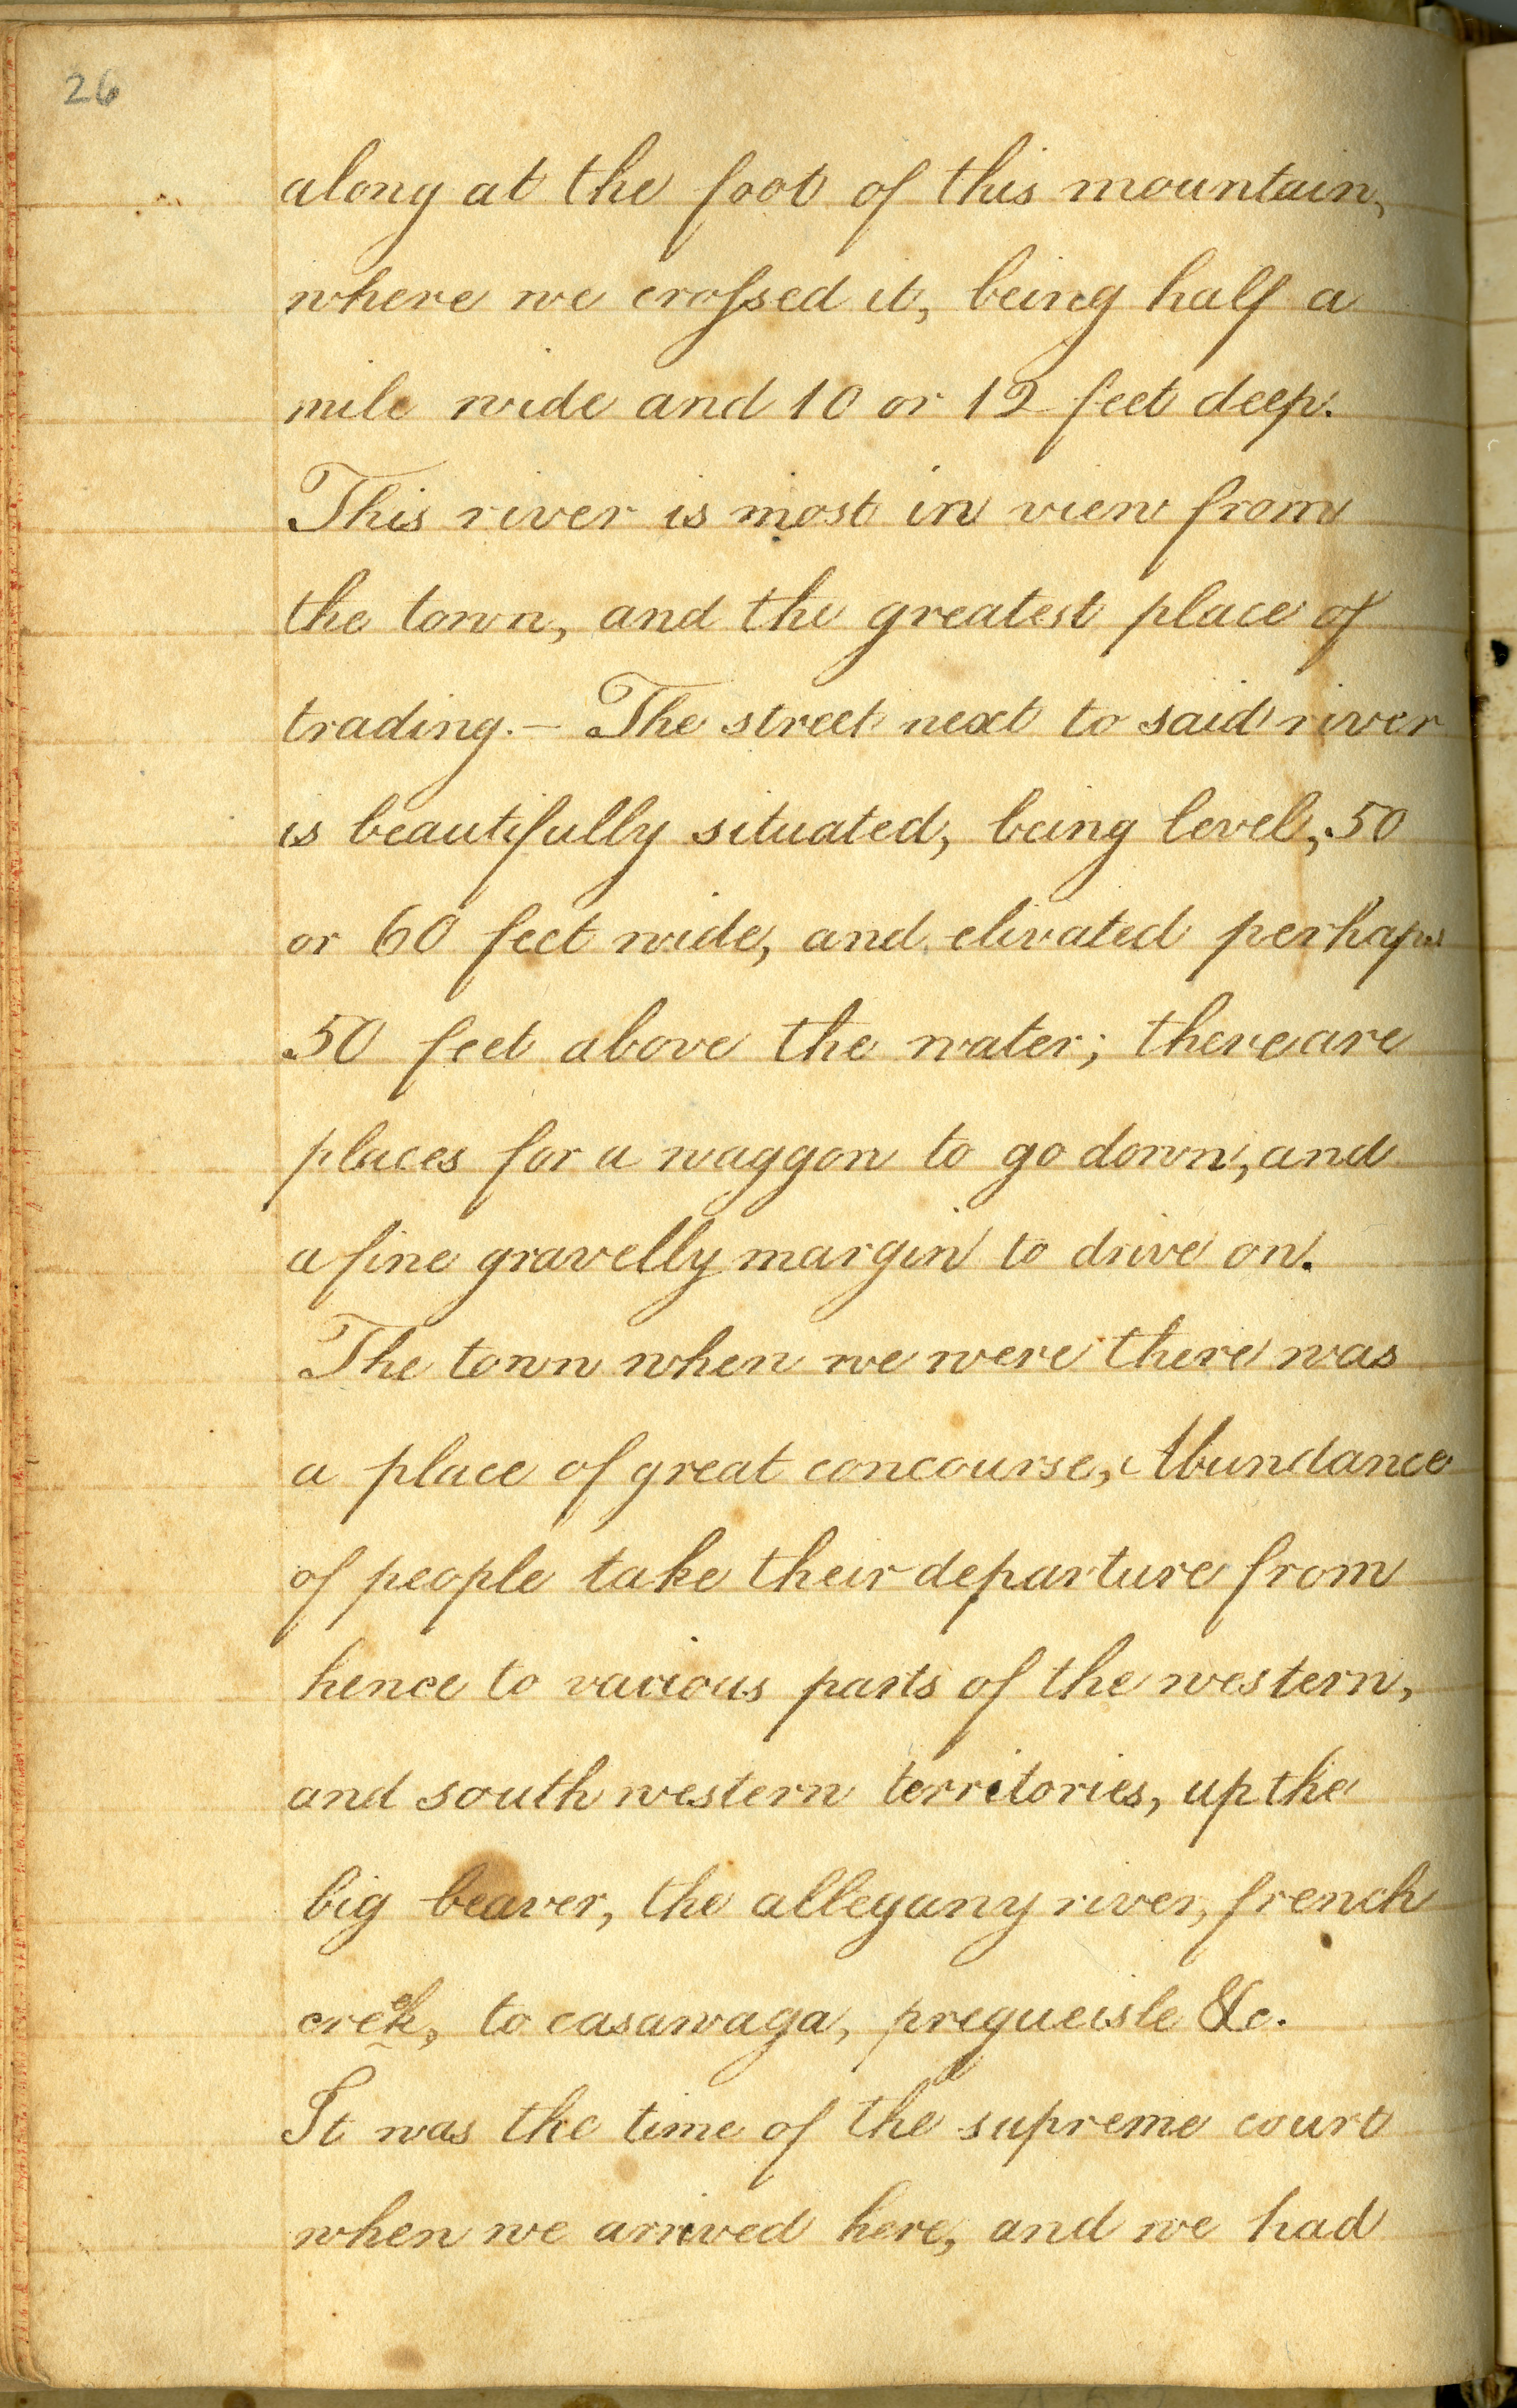 26
along at the foot of this mountain,
where we crossed it, being half a
mile wide and 10 or 12 feet deep.
This river is most in view from
the town, and the greatest place of
trading.– The street next to said river
is beautifully situated, being level, 50
or 60 feet wide, and elivated perhaps
50 feet above the water; there are
places for a waggon to go down, and
a fine gravelly margin to drive on.
The town when we were there was
a place of great concourse, Abundance
of people take their departure from
hence to various parts of the western,
and south western territories, up the
big beaver, the allegany river, french
creek, to casawaga, pregueisle &c.
It was the time of the supreme court
when we arrived here, and we had